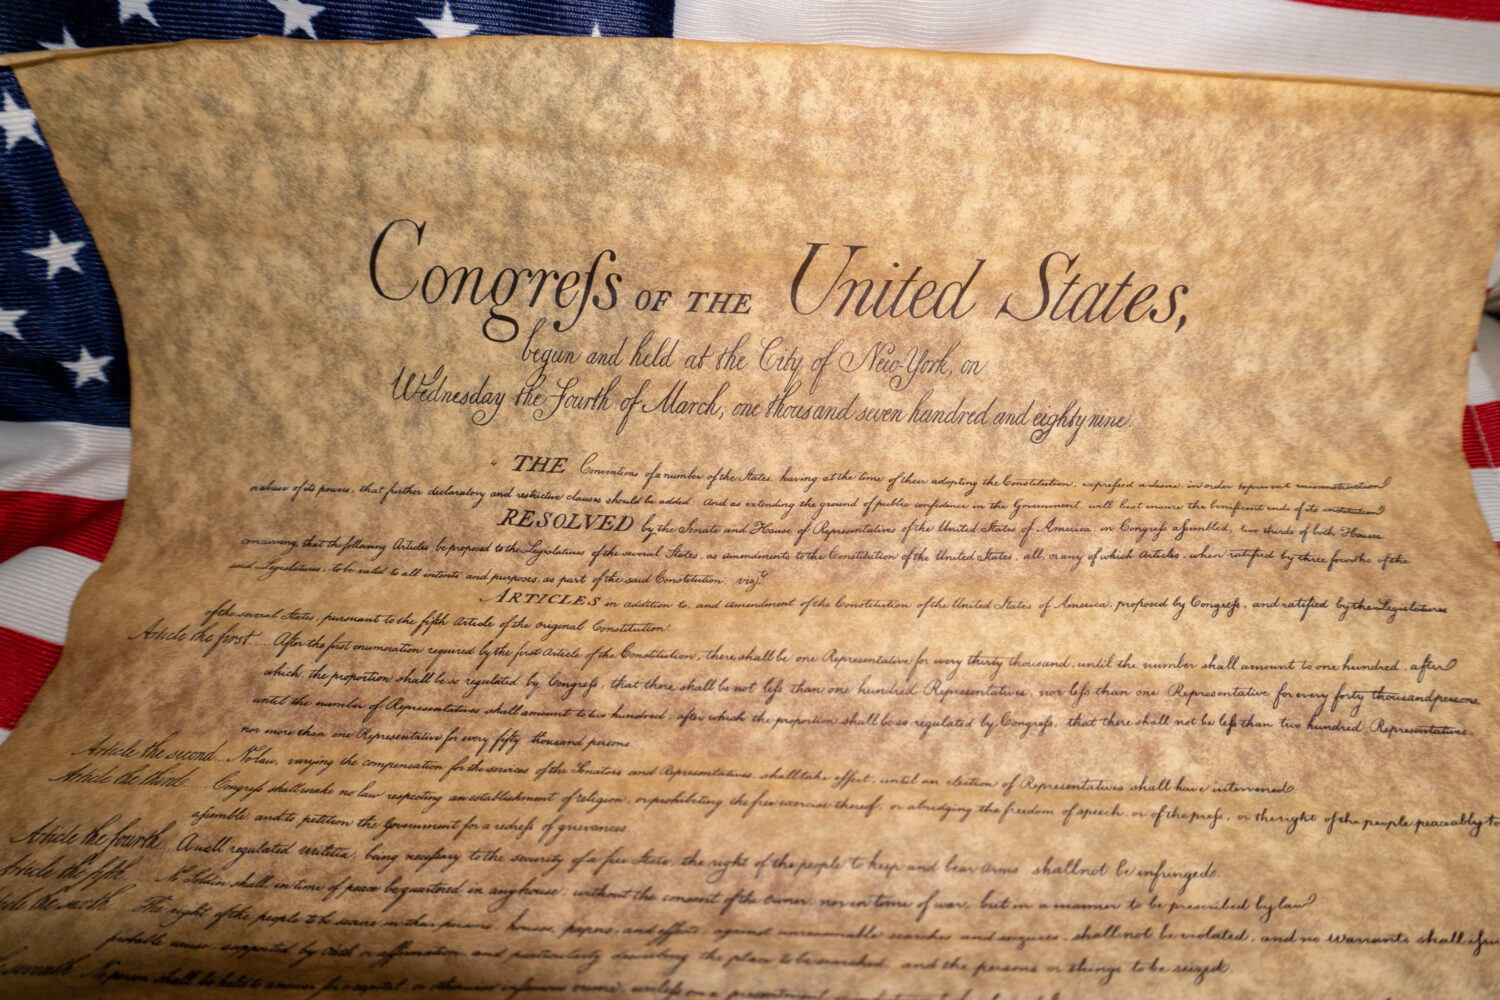 Congreſs OF THE United States,
begun and held at the City of New-York, on
Wednesday the Fourth of March, one thousand seven hundred and eighty nine.
THE Conventions of a number of the States, having at the time of their adopting the Constitution, expreſsed a desire, in order to prevent misconstruction
or abuse of its powers, that further declaratory and restrictive clauses should be added: And as extending the ground of public confidence in the Government, will best ensure the beneficent ends of its institution
RESOLVED by the Senate and House of Representatives of the United States of America, in Congreſs aſsembled, two thirds of both Houses
concurring, that the following Articles be proposed to the Legislatures of the several States, as amendments to the Constitution of the United States, all, or any of which Articles, when ratified by three fourths of the
said Legislatures, to be valid to all intents and purposes, as part of the said Constitution, viz.t
ARTICLES in addition to, and amendment of the Constitution of the United States of America, proposed by Congreſs, and ratified by the Legislatures
of the several States, pursuant to the fifth Article of the original Constitution.
Article the first.... After the first enumeration required by the first Article of the Constitution, there shall be one Representative for every thirty thousand, until the number shall amount to one hundred, after
which, the proportion shall be so regulated by Congreſs, that there shall be not leſs than one hundred Representatives, nor leſs than one Representative for every forty thousand persons,
until the number of Representatives shall amount to two hundred, after which the proportion shall be so regulated by Congreſs, that there shall not be leſs than two hundred Representatives,
nor more than one Representative for every fifty thousand persons.
Article the second... No law, varying the compensation for the services of the Senators and Representatives, shall take effect, until an election of Representatives shall have intervened.
Article the third.... Congreſs shall make no law respecting an establishment of religion, or prohibiting the free exercise thereof; or abridging the freedom of speech, or of the preſs, or the right of the people peaceably to
aſsemble, and to petition the Government for a redreſs of grievances.
Article the fourth. A well regulated militia, being neceſsary to the security of a free State, the right of the people to keep and bear arms shall not be infringed.
Article the fifth... No Soldier shall, in time of peace be quartered in any house, without the consent of the owner, nor in time of war, but in a manner to be prescribed by law.
the sixth... The right of the people to be secure in their persons, houses, papers, and effects, against unreasonable searches and seizures, shall not be violated, and no warrants shall
probable cause, supported by oath or affirmation, and particularly describing the place to be searched, and the persons or things to be seized.
seventh. No person shall be held to answer for a capital, or otherwise infamous crime, unleſs on a presentment